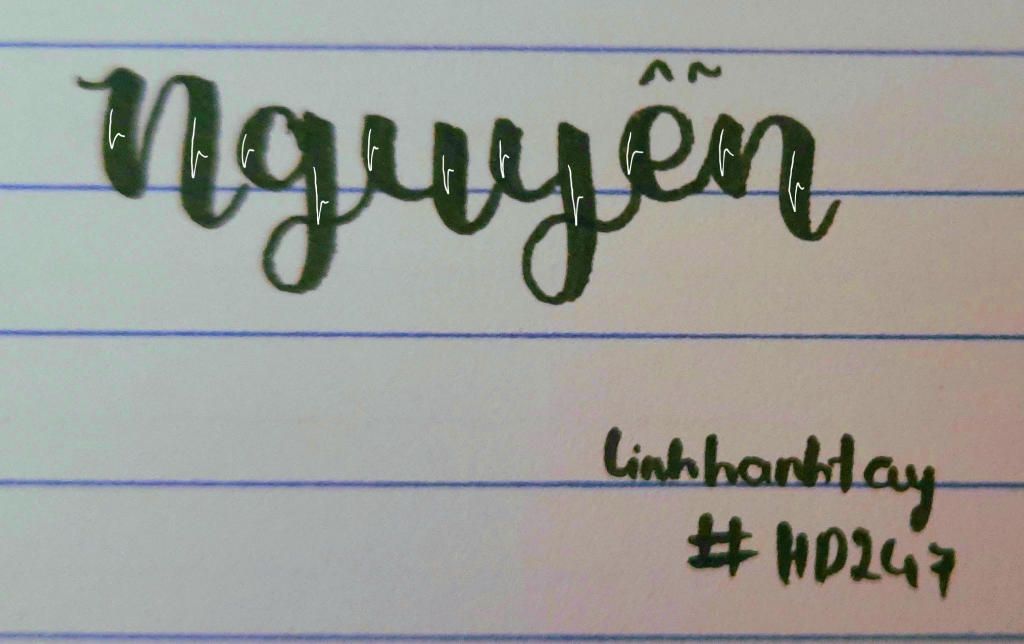 Nguyễn
linhhanhtay
#HD247